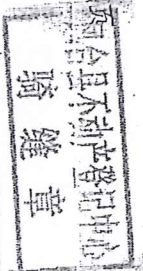 台县不动产登记中心
骑缝章